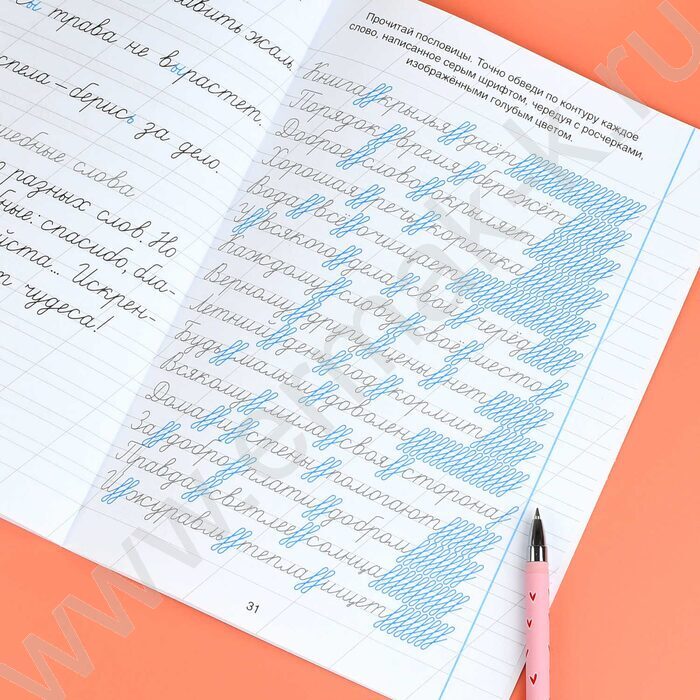 вить жаль.
трава не вырастет.
спела – берись за дело.
шебные слова
разных слов. Но
ные: спасибо, бла-
йста... Искрен-
т чудеса!
Прочитай пословицы. Точно обведи по контуру каждое
слово, написанное серым шрифтом, чередуя с росчерками,
изображёнными голубым цветом.
Книга крылья даёт
Порядок время бережёт
Доброе слово окрыляет
Хорошая речь коротка
Вода всё очищает
У всякого дела свой черёд
Каждому слову своё место
Верному другу цены нет
Летний день год кормит
Будь малым доволен
Всякому мила своя сторона
Дома и стены помогают
За добро плати добром
Правда светлее солнца
И журавль тепла ищет
31
www.ermak-k.ru